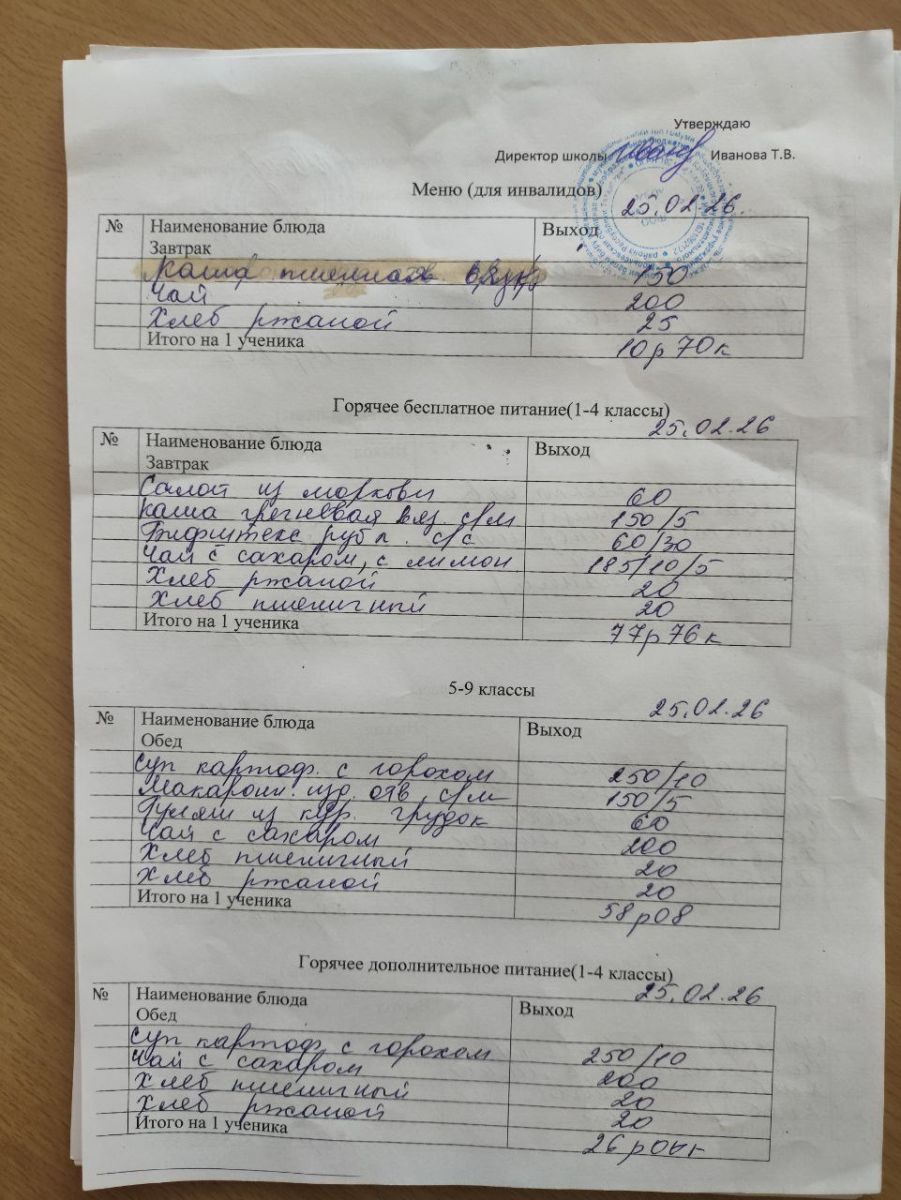 Утверждаю
Директор школы Иванова Т.В.
Меню (для инвалидов)
25.02.26.
№ Наименование блюда Выход
Завтрак
Каша пшеничная 150
Чай 200
Хлеб ржаной 25
Итого на 1 ученика 10р 70к
Горячее бесплатное питание(1-4 классы)
25.02.26
№ Наименование блюда Выход
Завтрак
Салат из моркови 60
Каша гречневая вяз. с/м 150/5
Бифштекс рубл. с/с 60/30
Чай с сахаром, с лимон 185/10/5
Хлеб ржаной 20
Хлеб пшеничный 20
Итого на 1 ученика 77р 76к
5-9 классы
25.02.26
№ Наименование блюда Выход
Обед
Суп картоф. с горохом 250/10
Макарон. изд. отв. с/м 150/5
Гуляш из кур. грудок 60
Чай с сахаром 200
Хлеб пшеничный 20
Хлеб ржаной 20
Итого на 1 ученика 58р08
Горячее дополнительное питание(1-4 классы)
25.02.26
№ Наименование блюда Выход
Обед
Суп картоф. с горохом 250/10
Чай с сахаром 200
Хлеб пшеничный 20
Хлеб ржаной 20
Итого на 1 ученика